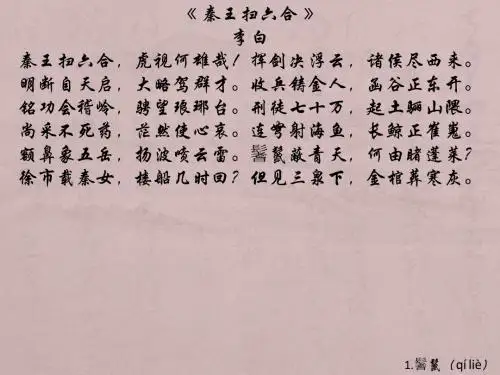 《秦王扫六合》
李白
秦王扫六合，虎视何雄哉！挥剑决浮云，诸侯尽西来。
明断自天启，大略驾群才。收兵铸金人，函谷正东开。
铭功会稽岭，骋望琅琊台。刑徒七十万，起土骊山隈。
尚采不死药，茫然使心哀。连弩射海鱼，长鲸正崔嵬。
额鼻象五岳，扬波喷云雷。鬐鬣蔽青天，何由睹蓬莱？
徐市载秦女，楼船几时回？但见三泉下，金棺葬寒灰。
1.鬐鬣（qí liè）